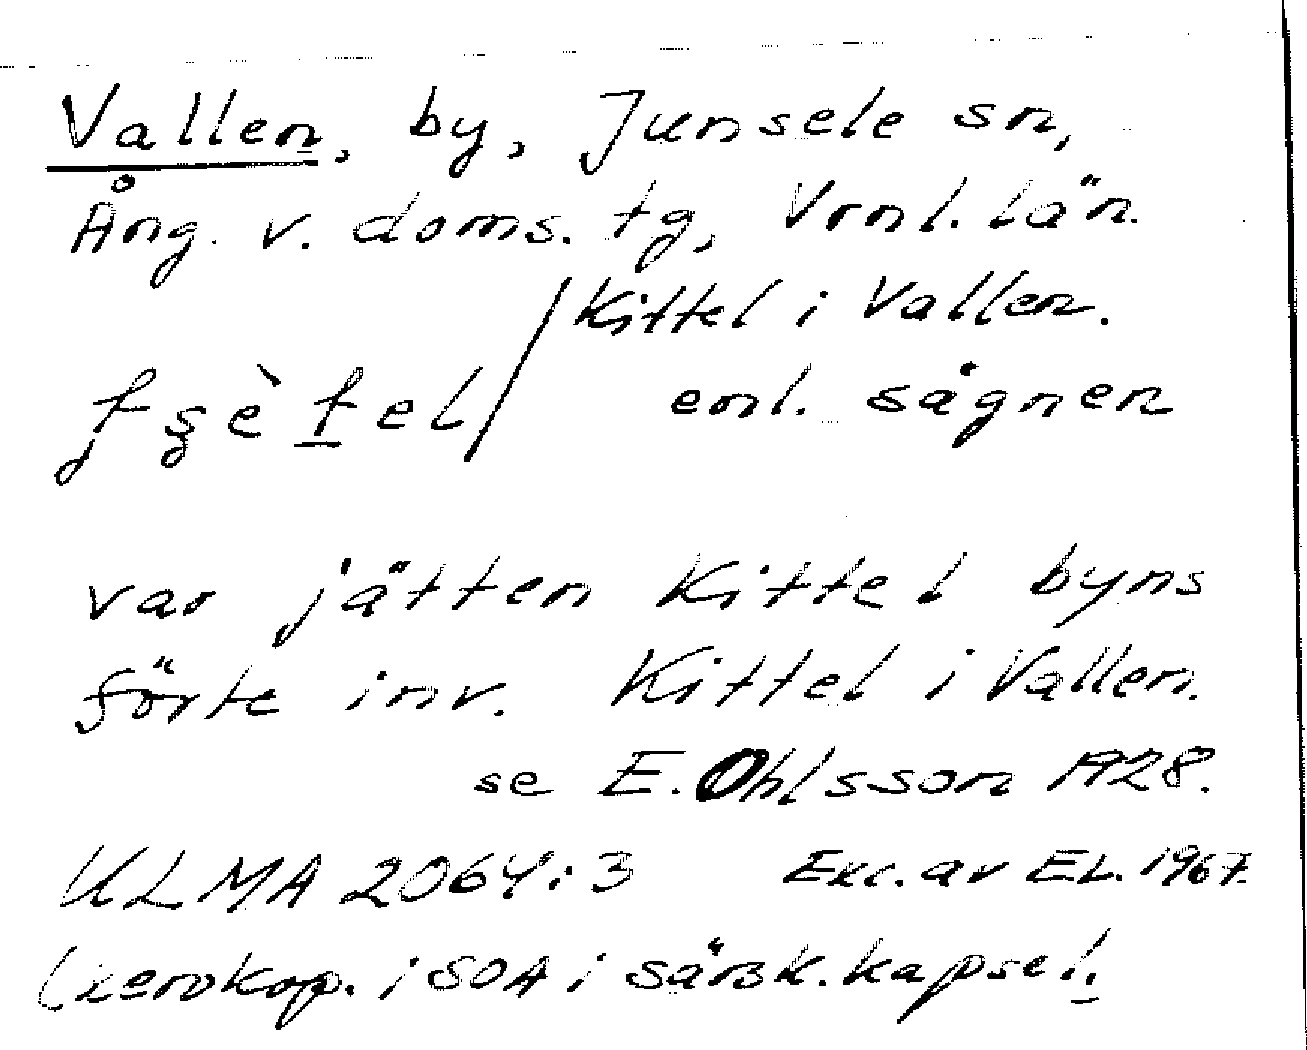 Vallen, by, Junsele sn,
Ång. v. doms. tg, Vrnl. län.
Kittel i Vallen.
enl. sägnen
var jätten Kittel byns
förte inv. Kittel i Vallen.
se E. Ohlsson 1928.
ULMA 2064:3 Exc. av EL. 1967.
(xeroxkop. i SOA i särsk. kapsel.